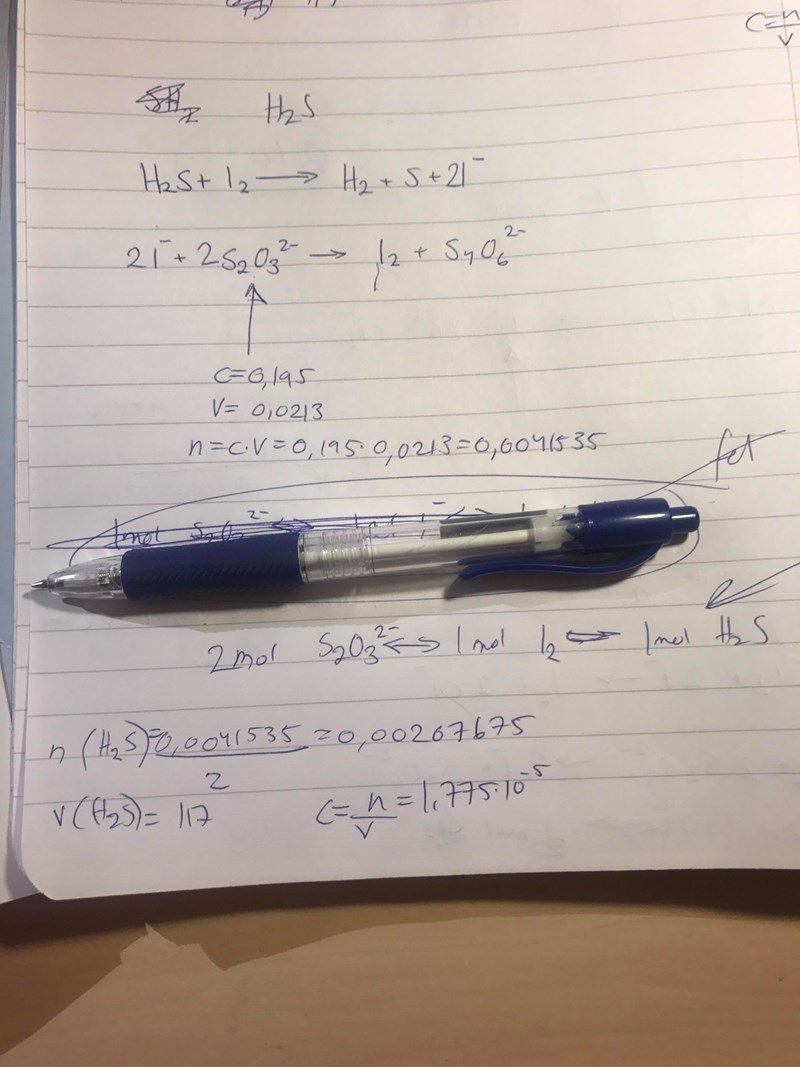 C=n/V
H₂S
H₂S + I₂ → H₂ + S + 2I⁻
2I⁻ + 2S₂O₃²⁻ → I₂ + S₄O₆²⁻
C=0,195
V= 0,0213
n=c·V=0,195·0,0213=0,0041535
1mol S₂O₃²⁻
2mol S₂O₃²⁻ ⟷ 1mol I₂ ⟷ 1mol H₂S
n(H₂S)=0,0041535/2 =0,00207675
V(H₂S)= 117 C=n/V=1,775·10⁻⁵